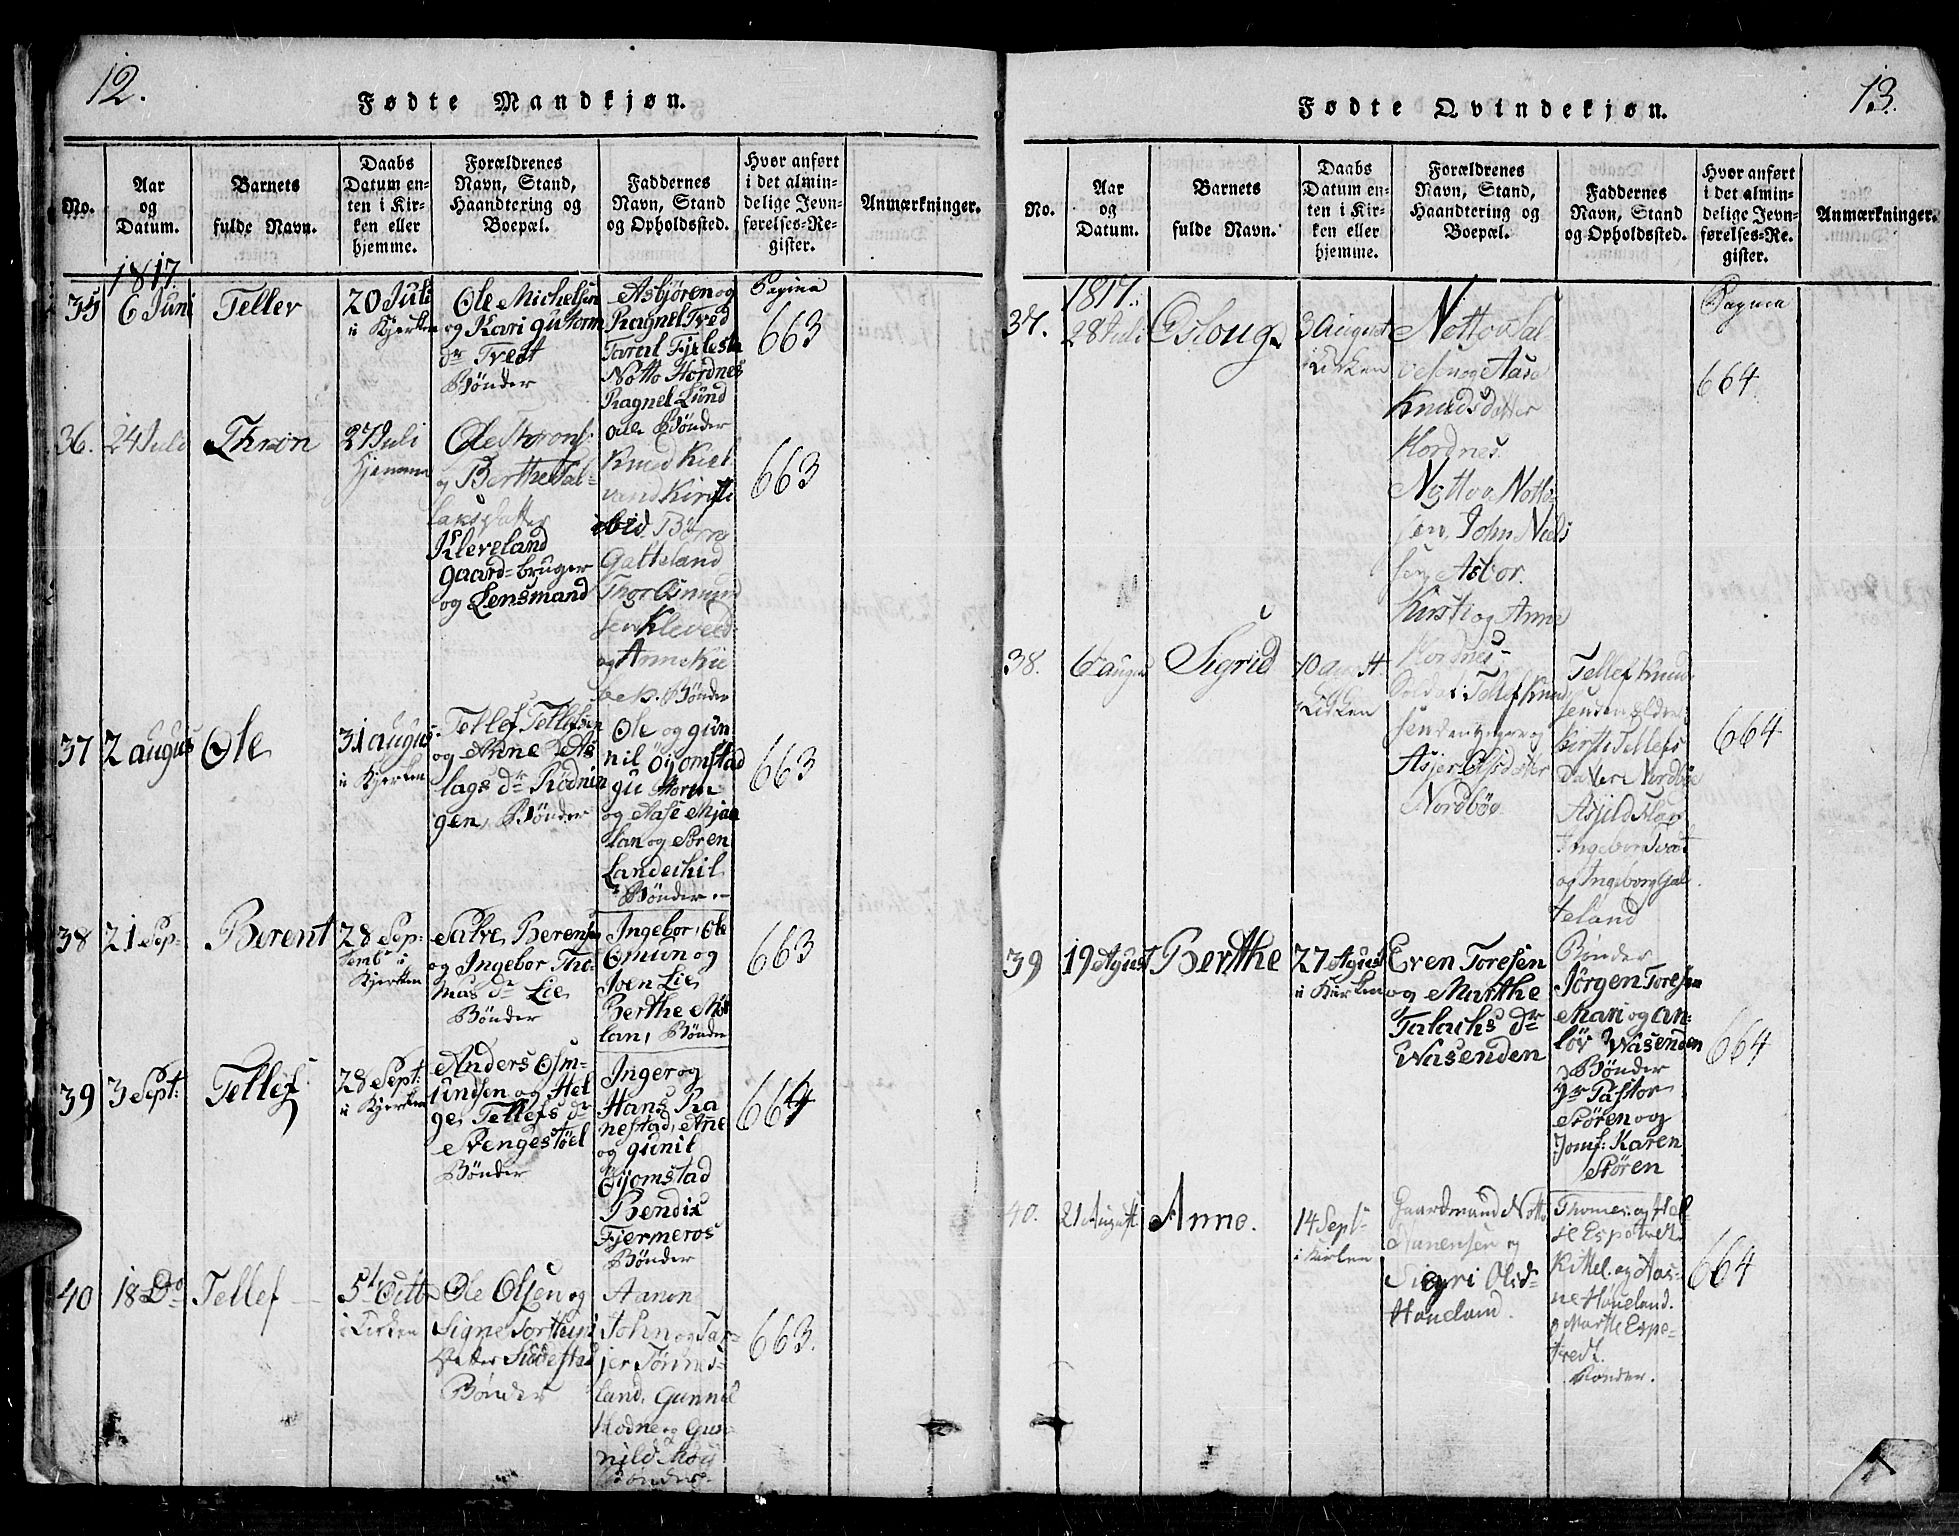 12.
Fødte Mandkjøn.
No.
Aar
og
Datum.
Barnets
fulde Navn.
Daabs
Datum en-
ten i Kir-
ken eller
hjemme.
Forældrenes
Navn, Stand,
Haandtering og
Boepæl.
Faddernes
Navn, Stand
og Opholdssted.
Hvor anført
i det almin-
delige Jevn-
førelses-Re-
gister.
Anmærkninger.
1817.
35
6 Juni
Tellev
20 Juli
i Kjerken
Ole Michelsen
og Kari gutorm
dr Tvedt
Bønder
Asbjøren og
Ragnel Tved
Taral Fjelest
Notto Hordnes
Ragnel Lund
alle Bønder
Pagina
663
36.
24 Juli
Thron
27 Juli
hjemme
Ole Throns
og Berthe Tal-
laksdatter
Kleveland
gaard-bruger
og Lensmand
Knud Kiet
vand Kirsti
ibid. Børre
Gatteland
Thor Osmund
sen Kleveld
og Anne Kie
bek. Bønder
663
37
2 augus
Ole
31 augus
i Kjerken
Tellef Tellefsen
og Anne As
lags dr Rødnin
gen, Bønder
Ole og gun
nil Øyomstad
gu ttorm
og Aase Mjaa
lan og Søren
Landeihil
Bønder
663
38
21 Sep-
Berent
28 Sep-
tembr i
Kjerken
Salve Berensen
og Ingebor Tho-
mas dr Lie
Bønder
Ingebor, Ole
Omun og
Aven Lie
Berthe Miø
lan, Bønder
663
39
3 Sept:
Tellef
28 Sept:
i Kjerken
Anders Osm-
undsen og Hel
ge Tellefs dr
Svengestøel
Bønder
Inger og
Hans Ra
nestad, Ane
og gunil
Øyomstad
Bendix
Fjermeros
Bønder
664
40
18 Do
Tellef
5t Octb
i Kirken
Ole Olsen og
Signe Torsteins
datter Sødestad
Bønder
Aanon
John og Tar-
jer Tønnes-
land, Gunnil
Hodne og Gun
nild Moy
Bønder
663.
13.
Fødte Qvindekjøn.
No.
Aar
og
Datum.
Barnets
fulde Navn.
Daabs
Datum en-
ten i Kir-
ken eller
hjemme.
Forældrenes
Navn, Stand,
Haandtering og
Boepæl.
Faddernes
Navn, Stand
og Opholdssted.
Hvor anført
i det almin-
delige Jevn-
førelses-Re-
gister.
Anmærkninger.
1817.
37.
28 Juli
Osloug
3 August
i Kirken
Notto Sal-
vesen og Aase
Knudsdatter
Hordnes
Notto Notto-
sen, John Niels
sen Asbor.
Kirsti og Anne
Hordnes
Pagina
664
38.
6 augus
Sigrid
10 August
i Kirken
Soldat Tellef Knud
sen den yngre og
Asjer Olsdatter
Nordbøe
Tellef Knud
sen den eldre
Kirsti Tellefs
datter Nordbøe
Asjild Flag
Ingebor Tvedt
og Ingeborg Gat
teland
Bønder
664
39
19 August
Berthe
27 August
i Kirken
Even Toresen
og Marthe
Talachs dr
Wasenden
Jørgen Toresen
Mari og An-
løv Wasenden
Bønder
Hr Pastor
Støren og
Jomf: Karen
Støren
664
40.
21 August
Anne.
14 Sept-
i Kirken
Gaardmand Notto
Aanensen og
Sigri Olsd-
Haueland.
Thomes og Hel
je Espetvedt
Kittel og Aas-
ne Haueland.
og Marthe Espe-
tvedt.
Bønder.
664